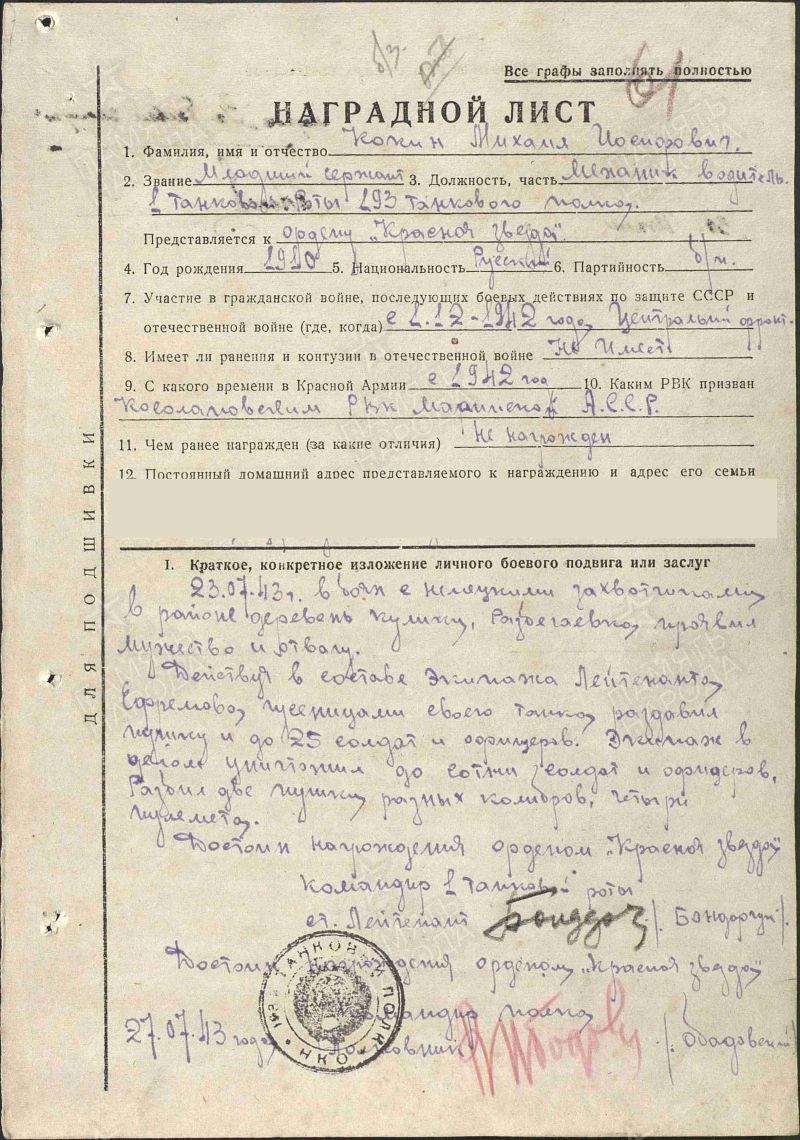 61
Все графы заполнять полностью
НАГРАДНОЙ ЛИСТ
1. Фамилия, имя и отчество Кожин Михаил Иосифович.
2. Звание Младший сержант 3. Должность, часть Механик водитель
1 танковой Роты 193 танкового полка.
Представляется к ордену „Красная звезда"
4. Год рождения 1910 5. Национальность Русский 6. Партийность б/п.
7. Участие в гражданской войне, последующих боевых действиях по защите СССР и
отечественной войне (где, когда) с 1.12-1942 года Центральный фронт.
8. Имеет ли ранения и контузии в отечественной войне Не Имеет
9. С какого времени в Красной Армии с 1942 год 10. Каким РВК призван
РВК А.С.С.Р.
11. Чем ранее награжден (за какие отличия) Не награжден
12. Постоянный домашний адрес представляемого к награждению и адрес его семьи
I. Краткое, конкретное изложение личного боевого подвига или заслуг
23.07.43г. в боях с немецкими захватчиками
в районе деревень Кулики, проявил
мужество и отвагу.
Действуя в составе Экипажа Лейтенанта
Ефремова, гусеницами своего танка раздавил
пушку и до 25 солдат и офицеров. Экипаж в
целом уничтожил до сотни солдат и офицеров,
Разбил две пушки разных калибров, четыри
пулемета.
Достоин награждения орденом „Красная звезда"
Командир 1 танковой роты
ст. Лейтенант /. Бондарчук /.
Достоин награждения орденом „Красная звезда"
Командир полка
27.07.43 года Полковник /.
193 ТАНКОВЫЙ ПОЛК
НКО
ДЛЯ ПОДШИВКИ